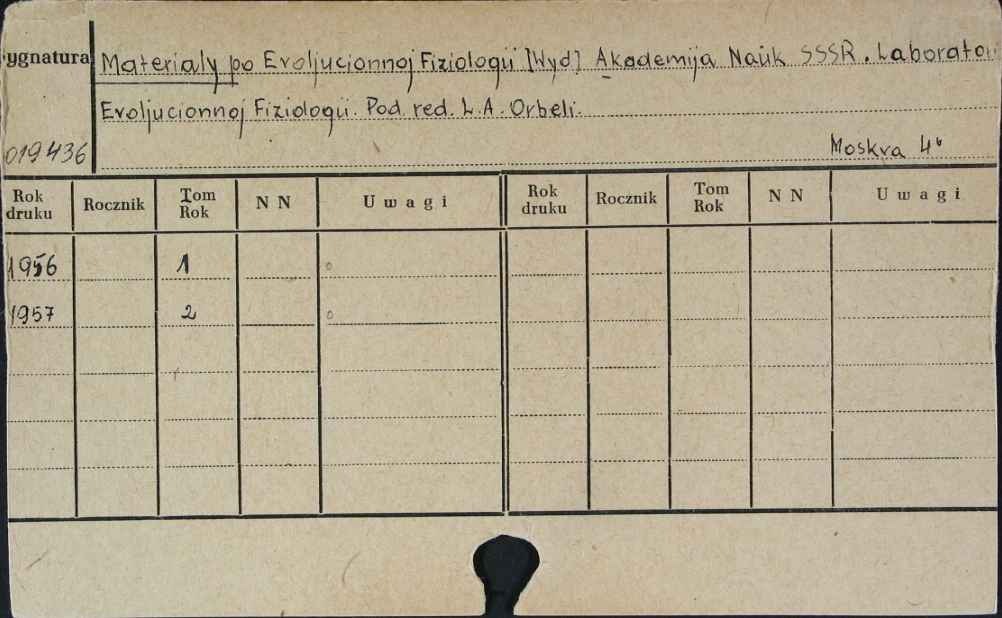 ygnatura Materialy po Evoljucionnoj Fiziologii [Wyd] Akademija Nauk SSSR. Laborator
Evoljucionnoj Fiziologii. Pod. red. L.A. Orbeli.
019436 Moskva 4°
Rok druku Rocznik Tom Rok N N Uwagi Rok druku Rocznik Tom Rok N N Uwagi
1956 1 o
1957 2 o